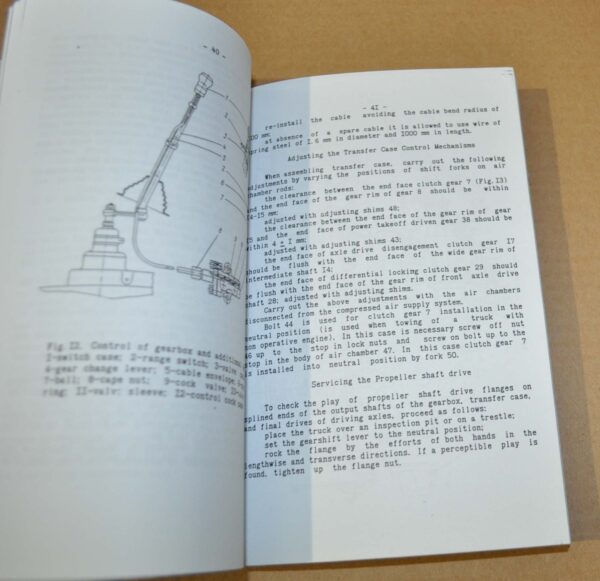 - 40 -
Fig. I2. Control of gearbox and
I-switch case; 2-range switch; 3-valve
4-gear change lever; 5-cable envelope;
7-ball; 8-cape nut; 9-cock valve;
ring; II-valve sleeve; I2-control cock
- 4I -
re-install the cable avoiding the cable bend radius of
mm;
at absence of a spare cable it is allowed to use wire of
spring steel of I.6 mm in diameter and I000 mm in length.
Adjusting the Transfer Case Control Mechanisms
When assembling transfer case, carry out the following
adjustments by varying the positions of shift forks on air
chamber rods:
the clearance between the end face clutch gear 7 (Fig.I3)
and the end face of the gear rim of gear 8 should be within
mm;
adjusted with adjusting shims 48;
the clearance between the end face of the gear rim of gear
and the end face of power takeoff driven gear 38 should be
within 4 ± I mm;
adjusted with adjusting shims 43;
the end face of axle drive disengagement clutch gear I7
should be flush with the end face of the wide gear rim of
intermediate shaft I4;
the end face of differential locking clutch gear 29 should
be flush with the end face of the gear rim of front axle drive
shaft 28; adjusted with adjusting shims.
Carry out the above adjustments with the air chambers
disconnected from the compressed air supply system.
Bolt 44 is used for clutch gear 7 installation in the
neutral position (is used when towing of a truck with
non operative engine). In this case is necessary screw off nut
46 up to the stop in lock nuts and screw on bolt up to the
stop in the body of air chamber 47. In this case clutch gear 7
is installed into neutral position by fork 50.
Servicing the Propeller shaft drive
To check the play of propeller shaft drive flanges on
splined ends of the output shafts of the gearbox, transfer case,
and final drives of driving axles, proceed as follows:
place the truck over an inspection pit or on a trestle;
set the gearshift lever to the neutral position;
rock the flange by the efforts of both hands in the
lengthwise and transverse directions. If a perceptible play is
found, tighten up the flange nut.